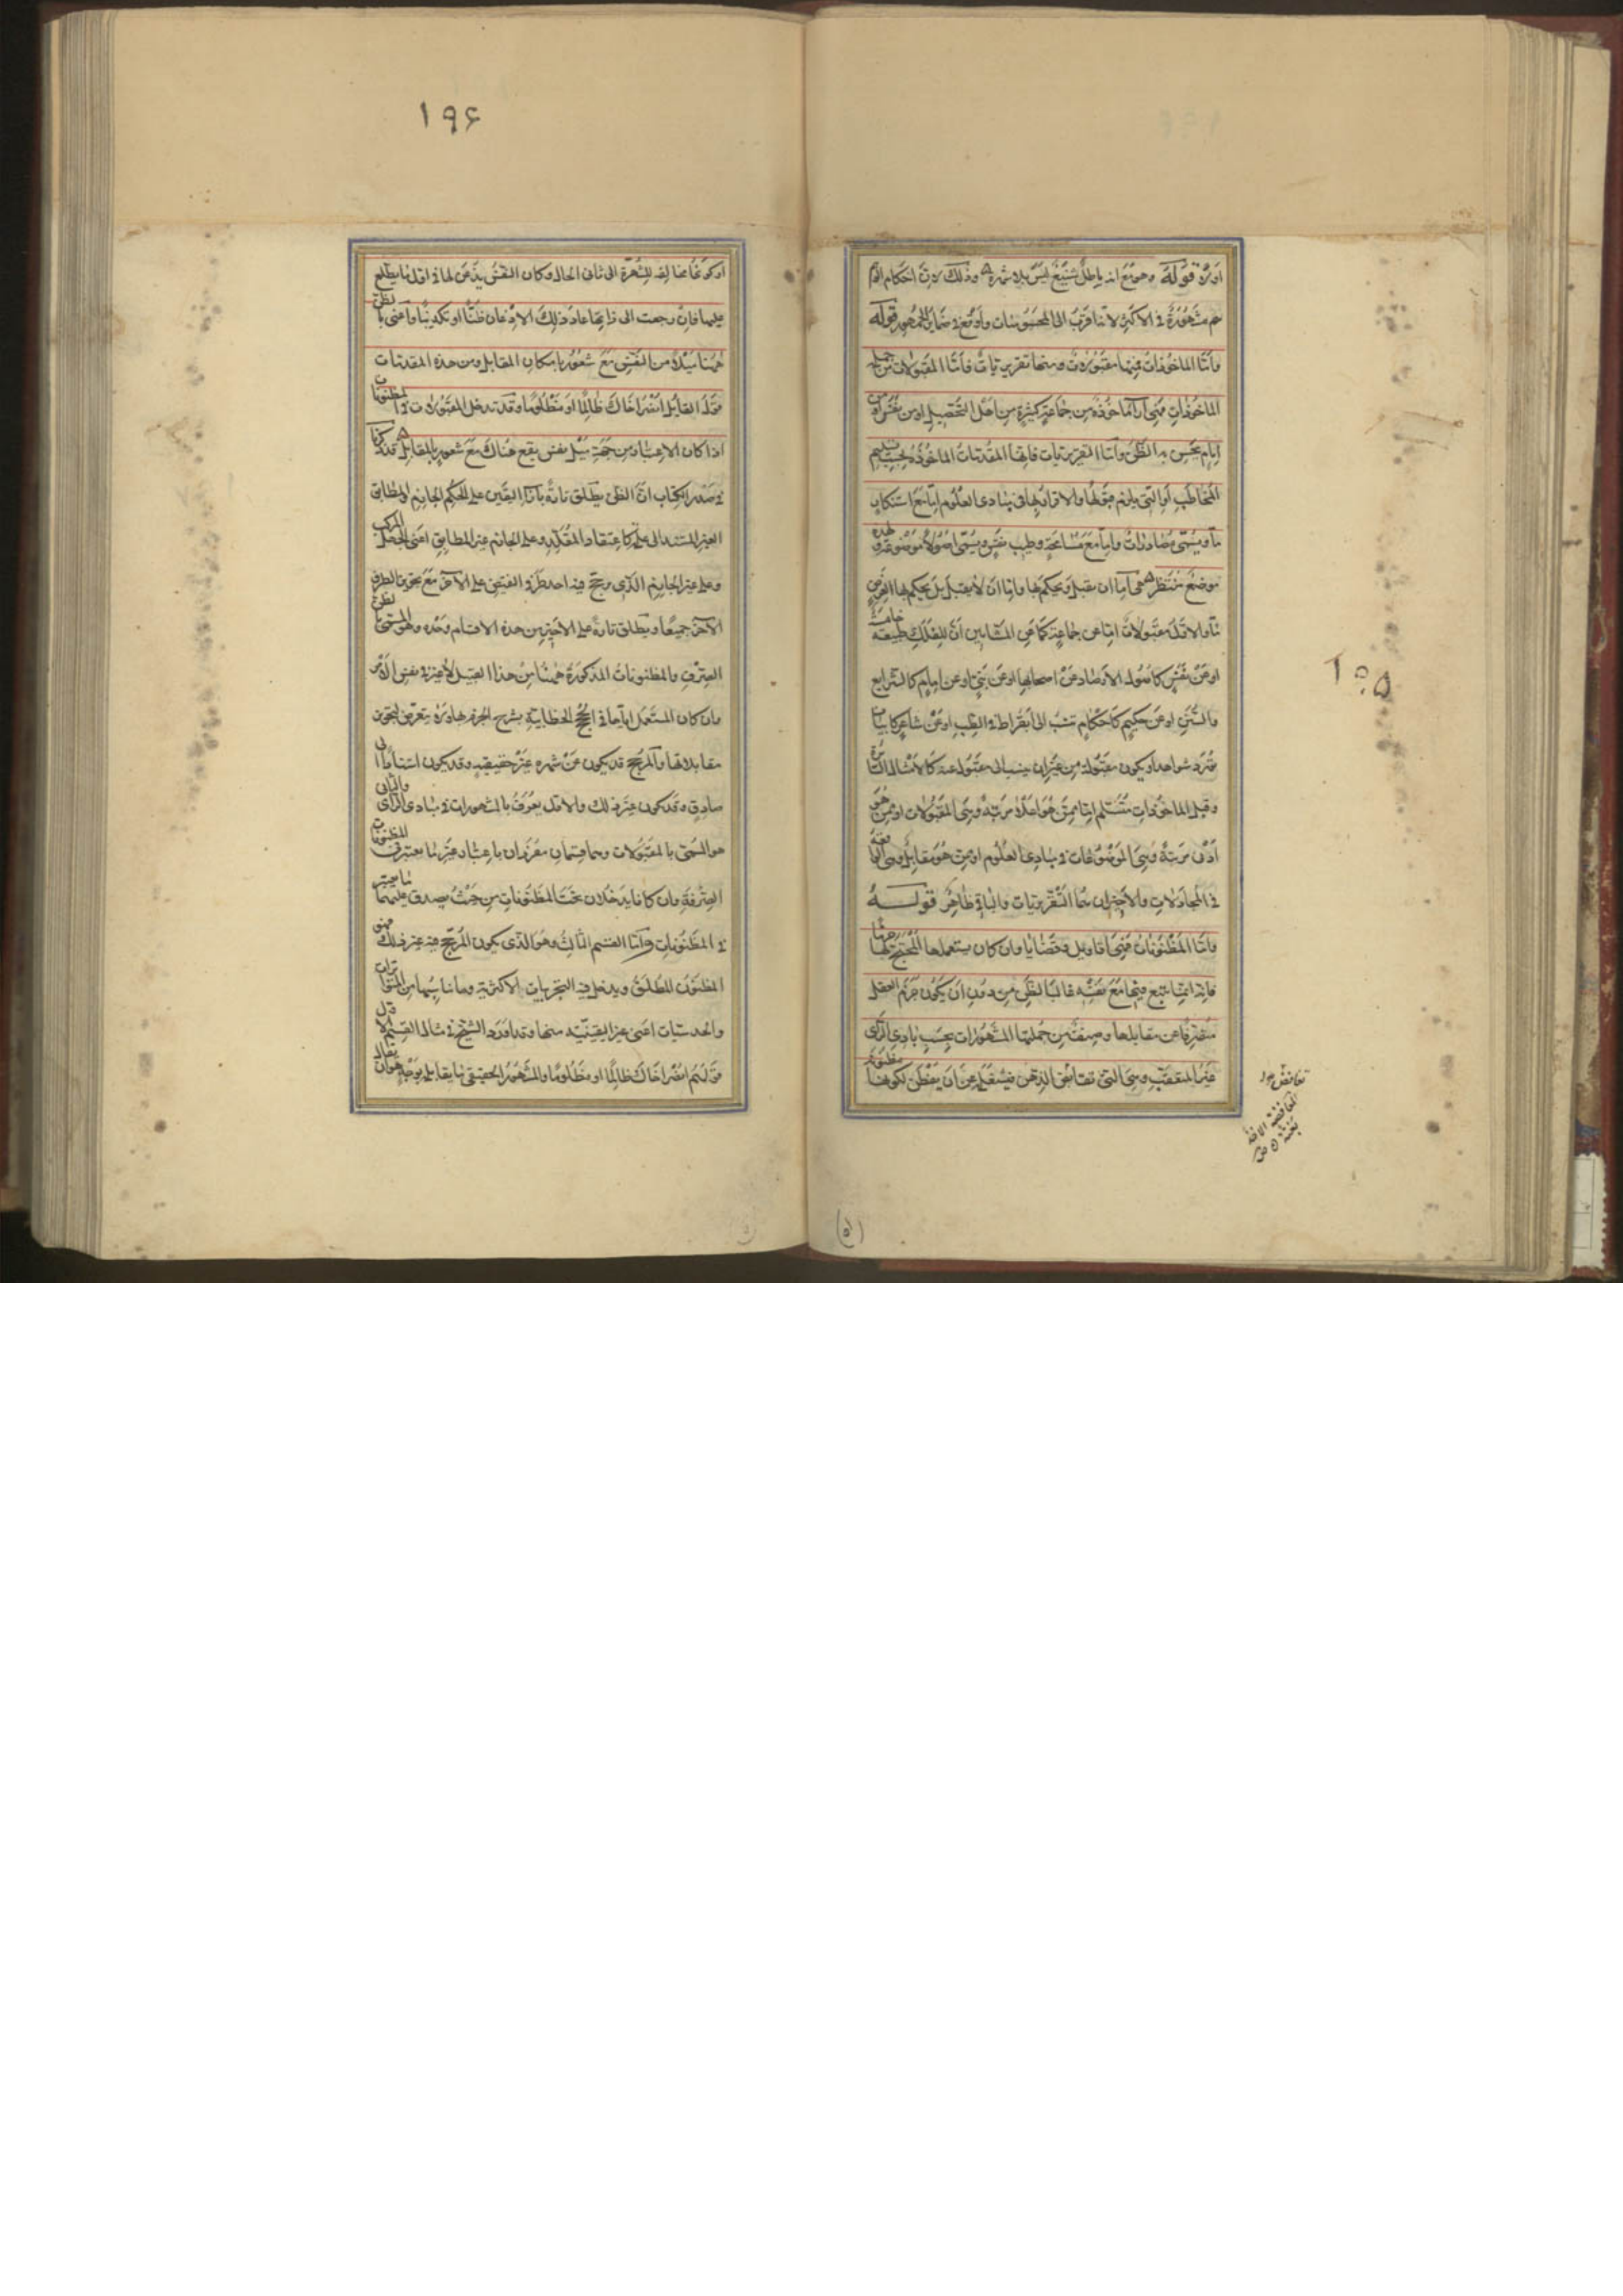 اورده قوله وهو مع انه باطل شنيع ليس بلا شهرة وذلك لان احكام الوهم
هم مشهورة في الاكثر لانها اقرب الى المحسوسات واوقع في ضماير الجمهور قوله
واما الماخوذات فمنها مقبولات ومنها تقريريات فاما المقبولات من جملة
الماخوذات فهي آراء ماخوذة من جماعة كثيرة من اهل التحصيل او من نفر او من
امام يحسن به الظن واما التقريريات فانها المقدمات الماخوذة بحسب تسليم
المخاطب او التي يلزم قبولها والاقرار بها في مبادى العلوم اما مع استنكار
ما ويسمى مصادرات واما مع مسامحة وطيب نفس ويسمى اصولا موضوعة ولهذه
موضع منتظر هي اما ان يقبل ويحكم بها واما ان لا يقبل بل يحكم بها لغرض
ما والاول مقبولات اما عن جماعة كما عن المشائين ان للفلك طبيعة خامسة
او عن نفر كاصول الارصاد عن اصحابها او عن نبي او عن امام كالشرايع
والسنن او عن حكيم كاحكام تنسب الى بقراط في الطب او عن شاعر كابيات
تورد شواهد او يكون مقبولة من غير ان ينسب الى مقبول عنه كالامثال السائرة
وقيل الماخوذات متسلم اما ممن هو اعلا مرتبة وهي المقبولات او ممن هو
ادنى مرتبة وهي الموضوعات في مبادى العلوم او ممن هو مقابل وهي الواقعة
في المجادلات والاخيران هما التقريريات والباقي ظاهر قوله
واما المظنونات فهي اقاويل وقضايا وان كان يستعملها المحتج جزما
فانه انما يتبع فيها مع نفسه غالب الظن من دون ان يكون جزم العقل
منصرفا عن مقابلها وصنف من جملتها المشهورات بحسب بادى الراى
غير المتعقب وهي التي تغافص الذهن فيشغله عن ان يفطن لكونها مظنونة
تغافص
المغافصة الاخذ
بغتة
١٩٥
(٥)
١٩۶
او كونها مخالفة للشهرة الى ثاني الحال وكان النفس يذعن لها في اول ما يطلع
عليها فان رجعت الى ذاتها عاد ذلك الاذعان ظنا او تكذيبا واعنى بالظن
ههنا ميلا من النفس مع شعور بامكان المقابل ومن هذه المقدمات
قول القايل انصر اخاك ظالما او مظلوما وقد تدخل المقبولات في المظنونات
اذا كان الاعتبار من جهة ميل نفس يقع هناك مع شعور بالمقابل قد ذكرنا
في صدر الكتاب ان الظن يطلق تارة بازاء اليقين على الحكم الجازم المطابق
الغير المستند الى علته كاعتقاد المقلد وعلى الجازم غير المطابق اعنى الجهل المركب
وعلى غير الجازم الذي رجح فيه احد طرفى النقيض على الآخر مع تجويز الطرف
الآخر جميعا ويطلق تارة على الاخير من هذه الاقسام وحده وهو المسمى بالظن
الصرف والمظنونات المذكورة ههنا من هذا القبيل لا غير في نفس الامر
وان كان المستعمل اياها في الحجج الخطابية يصرح بالجزم بها ولا يتعرض لتجويز
مقابلاتها والمرجح قد يكون عن شهرة غير حقيقيه وقد يكون استنادا الى
صادق وقد يكون غير ذلك والاول يعرف بالمشهورات في بادى الراى والثانى
هو المسمى بالمقبولات وهما قسمان مفردان باعتبار غير ما يعتبر في المظنونات
الصرفة وان كانا يدخلان تحت المظنونات من حيث يصدق عليهما ما يعتبر
في المظنونات واما القسم الثالث وهو الذى يكون المرجح فيه غير ذلك فهو
المظنون المطلق ويدخل فيه التجربيات الاكثرية وما يناسبها من المتواترات
والحدسيات اعنى غير اليقينية منها وقد اورد الشيخ في مثال القسم الاول
قولهم انصر اخاك ظالما او مظلوما والمشهور الحقيقى ما يقابله بوجه وهو ان يقال